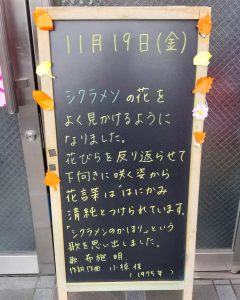 11月19日(金)
シクラメンの花を
よく見かけるように
なりました。
花びらを反り返らせて
下向きに咲く姿から
花言葉は"はにかみ
清純とつけられています。
「シクラメンのかほり」という
歌を思い出しました。
歌 布施 明
作詞作曲 小椋 佳
(1975年)